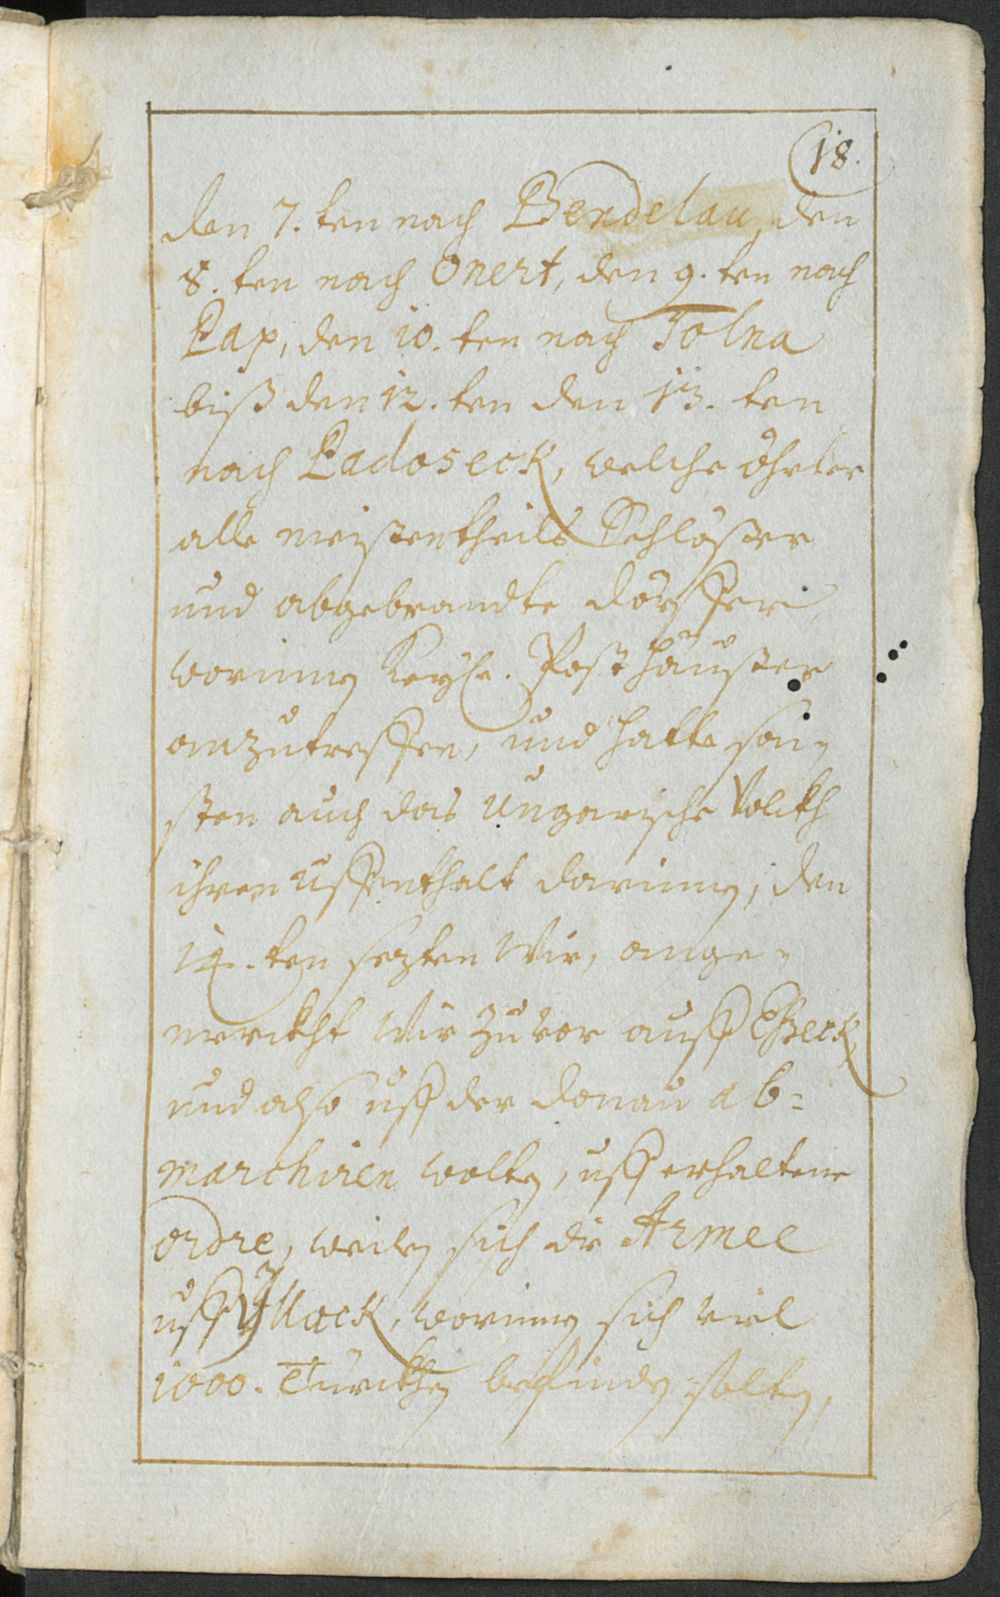 18.
den 7. ten nach Bendelau, den
8. ten nach Onert, den 9. ten nach
Pap, den 10. ten nach Tolna
biß den 12. ten den 13. ten
nach Padoseck, welche öhrter
alle meistentheils Schlösser
und abgebrandte dörffer,
worinnen Kayße. Posthäusser
anzutreffen, und hatte son-
sten auch das Ungarische Volckh
ihren uffenthalt darinnen, den
14. ten sezten Wir, ange-
merckht Wir zuvor auff Esseck
und also uff der donau ab=
marchiren wolten, uff erhaltene
ordre, weilen sich die Armee
uff Illock, worinnen sich viel
1000. Türckhen befinden solten,